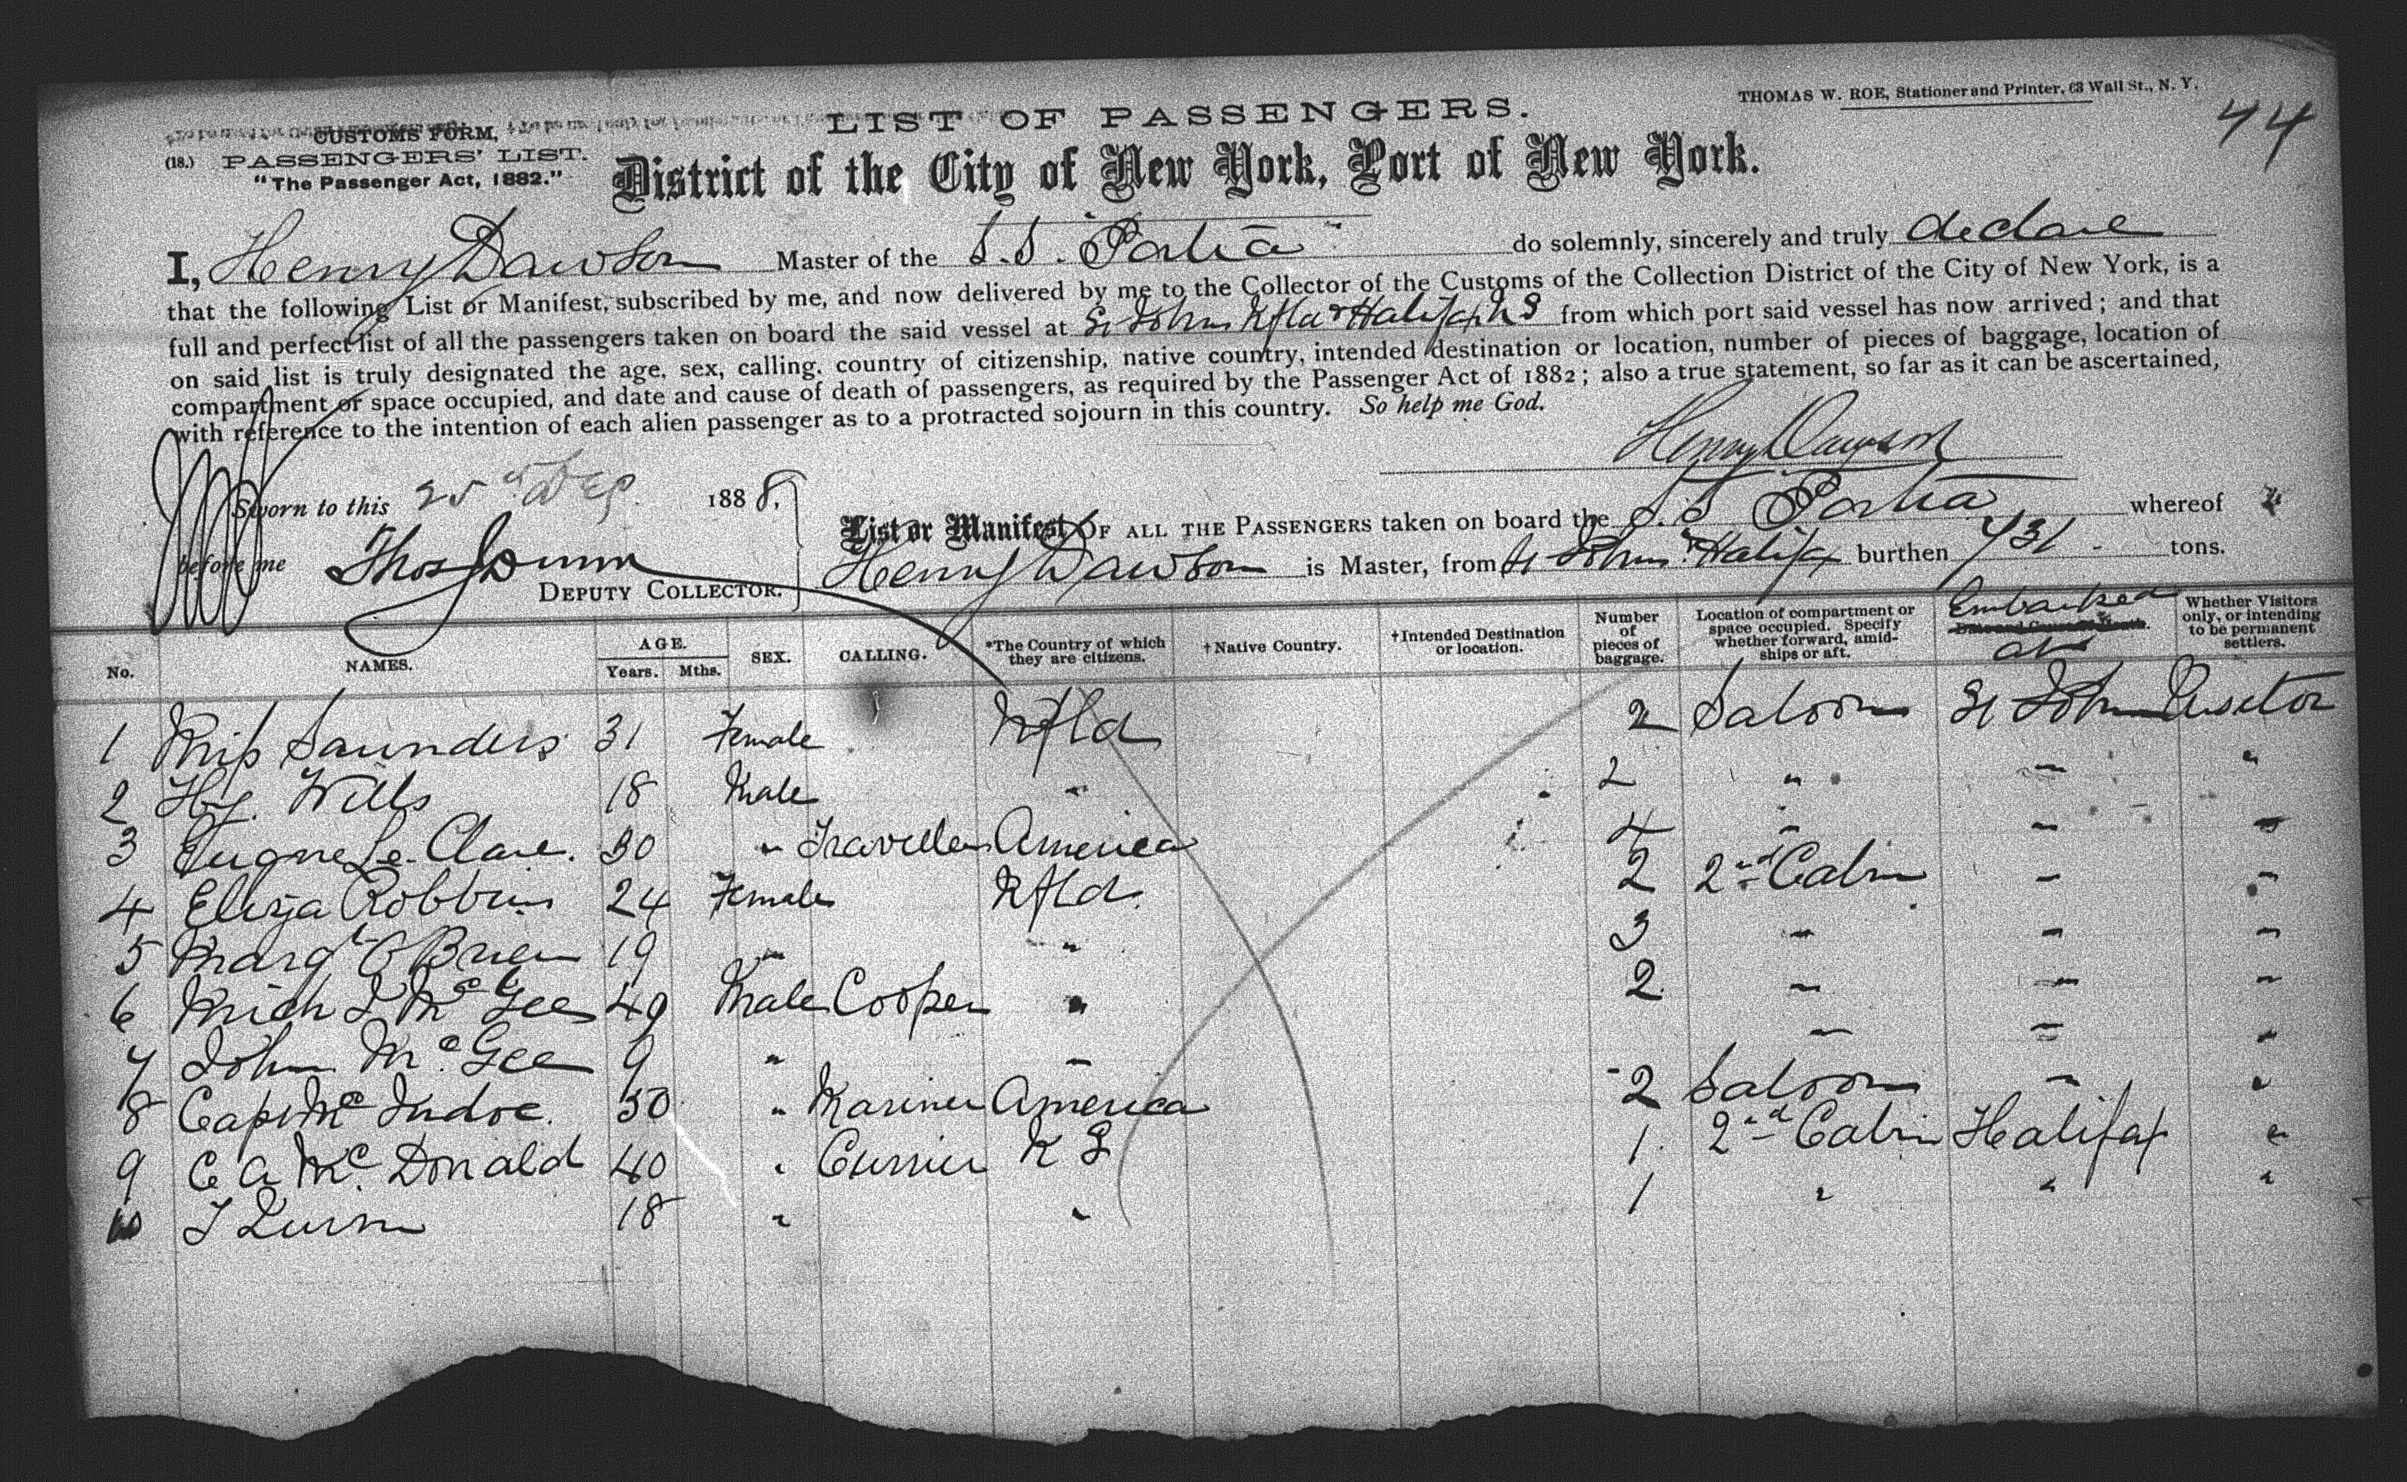 THOMAS W. ROE, Stationer and Printer, 63 Wall St., N. Y.
44
LIST OF PASSENGERS.
CUSTOMS FORM,
(18.) PASSENGERS' LIST.
"The Passenger Act, 1882."
District of the City of New York, Port of New York.
I, Henry Dawson Master of the S.S. Portia do solemnly, sincerely and truly declare
that the following List or Manifest, subscribed by me, and now delivered by me to the Collector of the Customs of the Collection District of the City of New York, is a
full and perfect list of all the passengers taken on board the said vessel at St Johns Nfld & Halifax NS from which port said vessel has now arrived; and that
on said list is truly designated the age, sex, calling, country of citizenship, native country, intended destination or location, number of pieces of baggage, location of
compartment or space occupied, and date and cause of death of passengers, as required by the Passenger Act of 1882; also a true statement, so far as it can be ascertained,
with reference to the intention of each alien passenger as to a protracted sojourn in this country. So help me God.
Henry Dawson
Sworn to this 25th Sep 1888,
before me Thos Dunn
DEPUTY COLLECTOR.
List or Manifest OF ALL THE PASSENGERS taken on board the S.S Portia whereof
Henry Dawson is Master, from St Johns & Halifax burthen 731 tons.
No. NAMES. AGE. Years. Mths. SEX. CALLING. *The Country of which they are citizens. †Native Country. †Intended Destination or location. Number of pieces of baggage. Location of compartment or space occupied. Specify whether forward, amidships or aft. Embarked at Date and Cause of Death. Whether Visitors only, or intending to be permanent settlers.
1 Miss Saunders 31 Female Nfld 2 Saloon St John Visitor
2 Hy. Wills 18 Male " 2 " " "
3 Eugene Le Clare. 30 " Traveller America 4 " " "
4 Eliza Robbins 24 Female Nfld. 2 2nd Cabin " "
5 Margt O'Brien 19 " " 3 " " "
6 Mich J McGee 49 Male Cooper " 2 " " "
7 John McGee 9 " " " " "
8 Capt McIndoe. 50 " Mariner America 2 Saloon " "
9 C A McDonald 40 " Currier N S 1 2nd Cabin Halifax "
10 J Quinn 18 " " 1 " " "